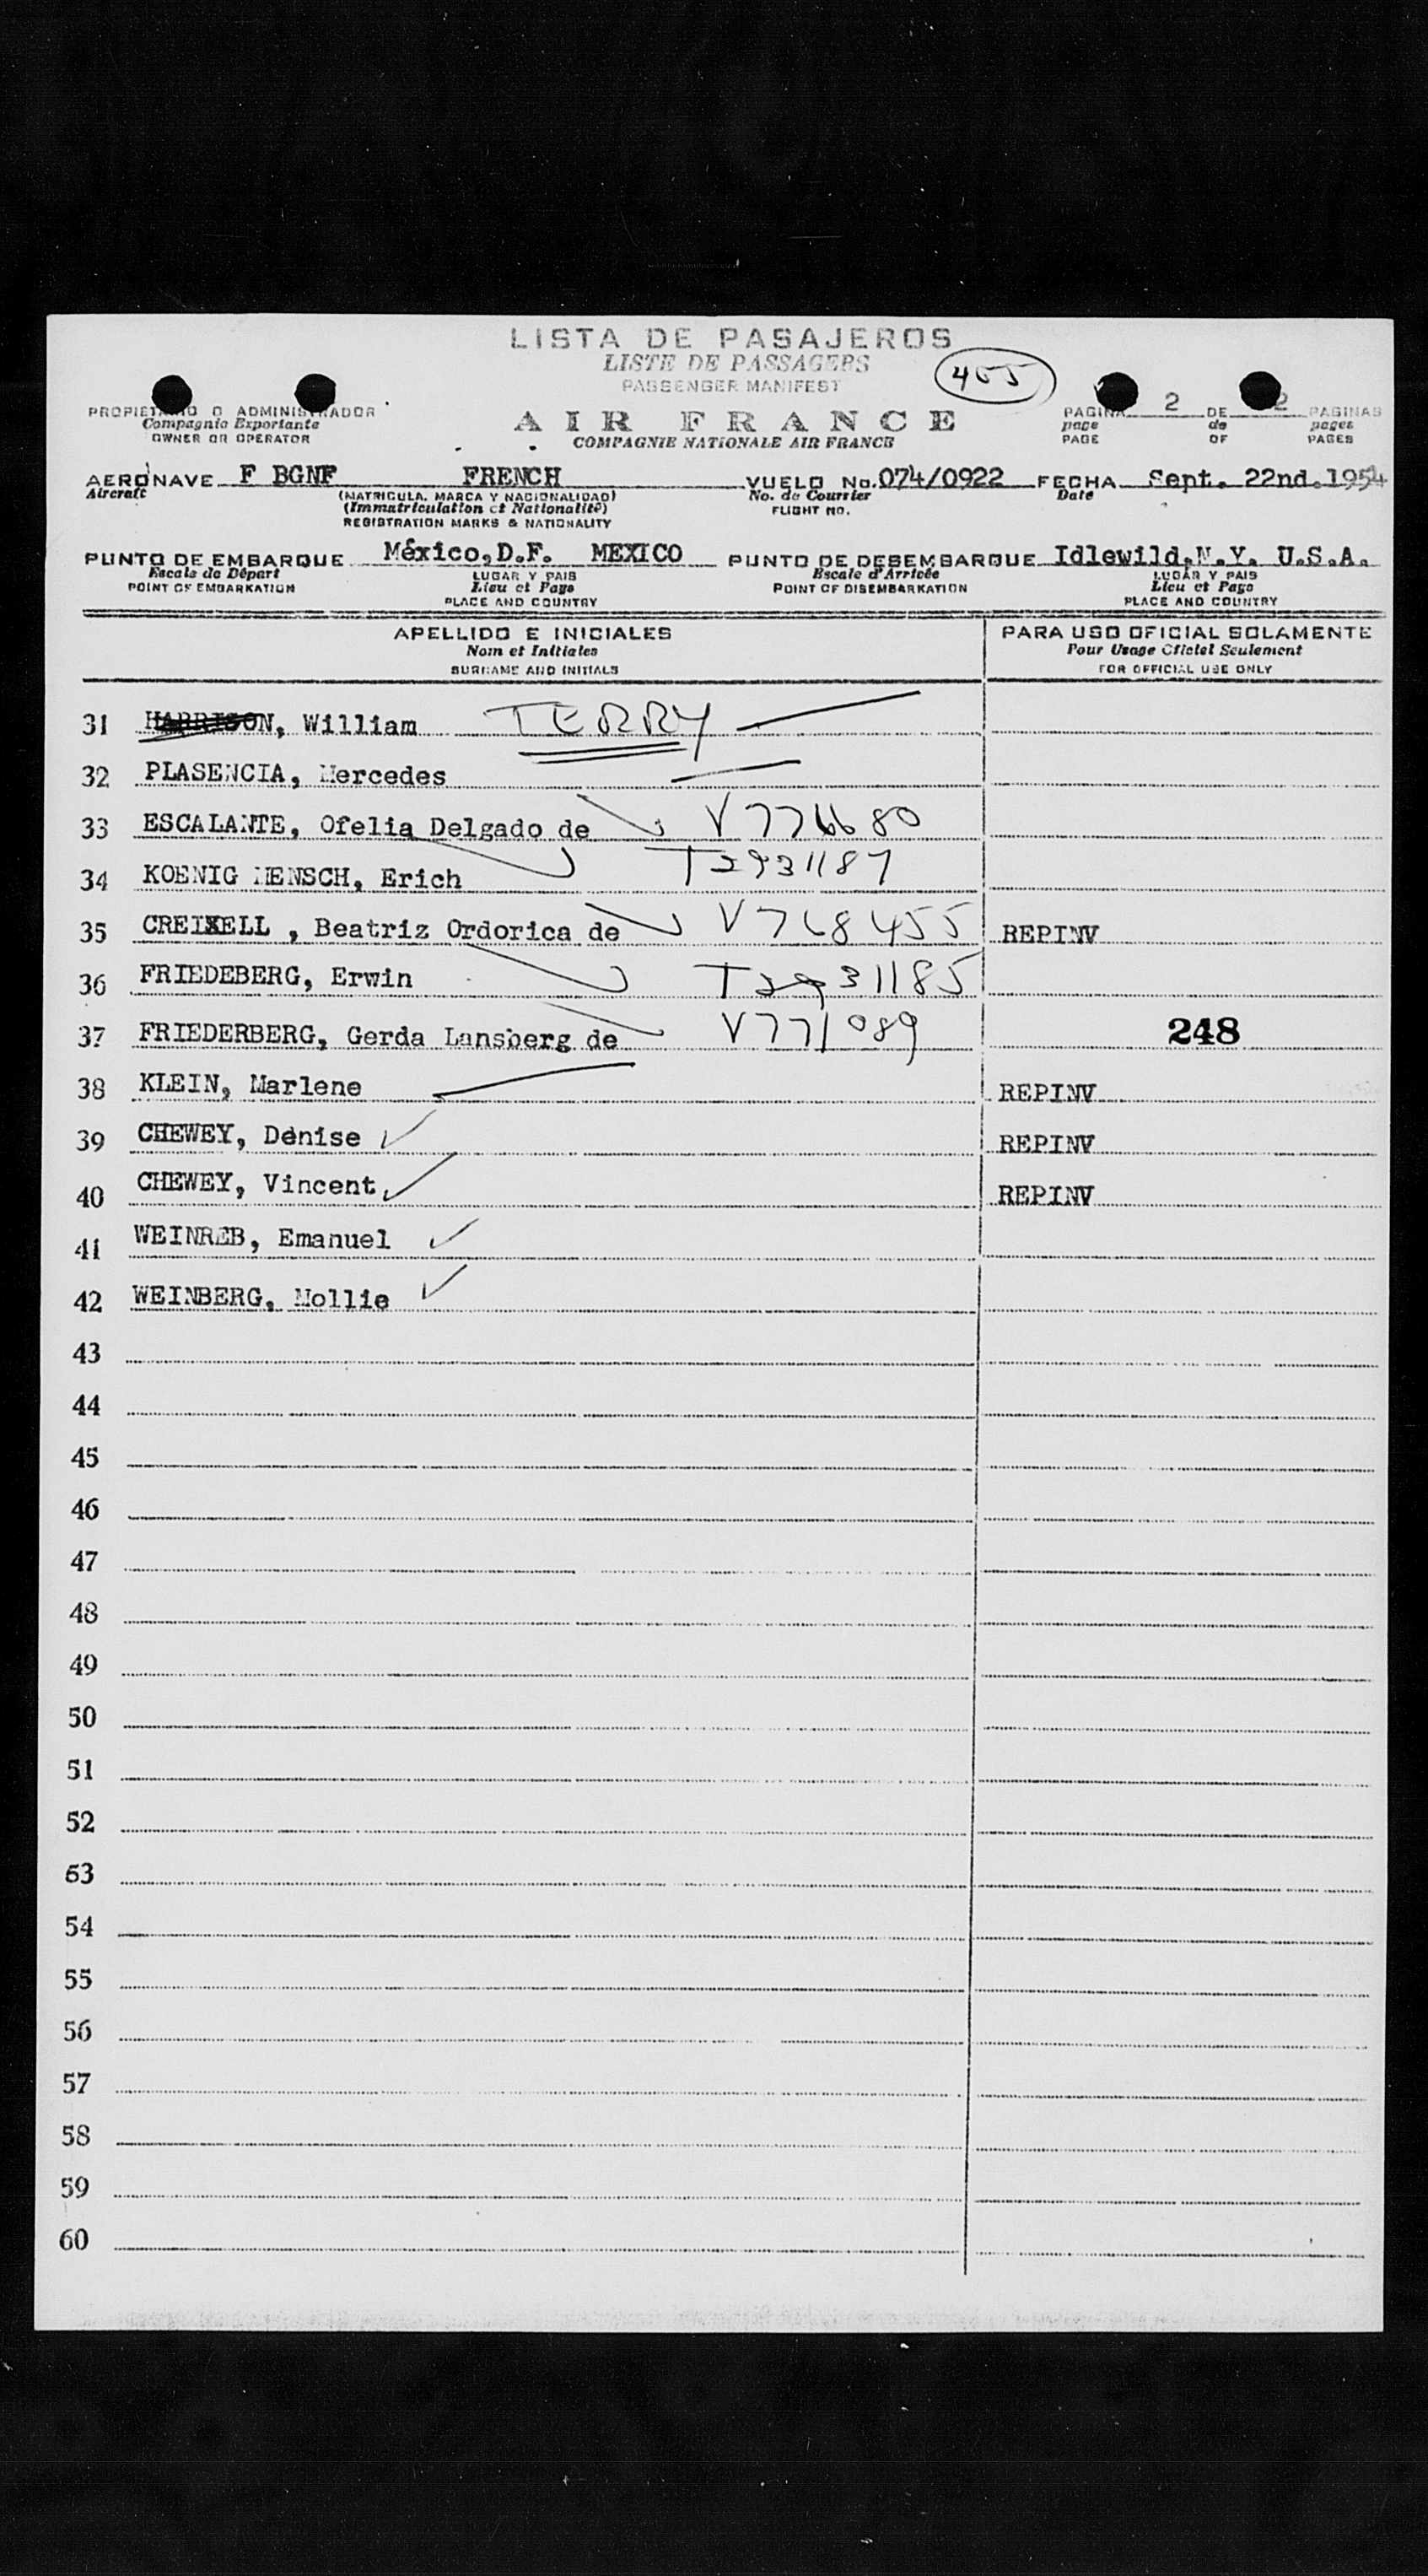 LISTA DE PASAJEROS
LISTE DE PASSAGERS
PASSENGER MANIFEST
455
PROPIETARIO O ADMINISTRADOR
Compagnie Exportante
OWNER OR OPERATOR
AIR FRANCE
COMPAGNIE NATIONALE AIR FRANCE
PAGINA 2 DE 2 PAGINAS
page de pages
PAGE OF PAGES
AERONAVE F BGNF FRENCH VUELO No. 074/0922 FECHA Sept. 22nd. 1954
Aircraft (MATRICULA, MARCA Y NACIONALIDAD) No. de Courrier Date
(Immatriculation et Nationalité) FLIGHT NO.
REGISTRATION MARKS & NATIONALITY
PUNTO DE EMBARQUE México,D.F. MEXICO PUNTO DE DESEMBARQUE Idlewild,N.Y. U.S.A.
Escale de Départ LUGAR Y PAIS Escale d'Arrivée LUGAR Y PAIS
POINT OF EMBARKATION Lieu et Pays POINT OF DISEMBARKATION Lieu et Pays
PLACE AND COUNTRY PLACE AND COUNTRY
APELLIDO E INICIALES PARA USO OFICIAL SOLAMENTE
Nom et Initiales Pour Usage Officiel Seulement
SURNAME AND INITIALS FOR OFFICIAL USE ONLY
31 HARRISON, William TERRY
32 PLASENCIA, Mercedes
33 ESCALANTE, Ofelia Delgado de V776680
34 KOENIG MENSCH, Erich T2931187
35 CREIXELL , Beatriz Ordorica de V768455 REPINV
36 FRIEDEBERG, Erwin T2931185
37 FRIEDERBERG, Gerda Lansberg de V771089 248
38 KLEIN, Marlene REPINV
39 CHEWEY, Denise REPINV
40 CHEWEY, Vincent REPINV
41 WEINREB, Emanuel
42 WEINBERG, Mollie
43
44
45
46
47
48
49
50
51
52
53
54
55
56
57
58
59
60